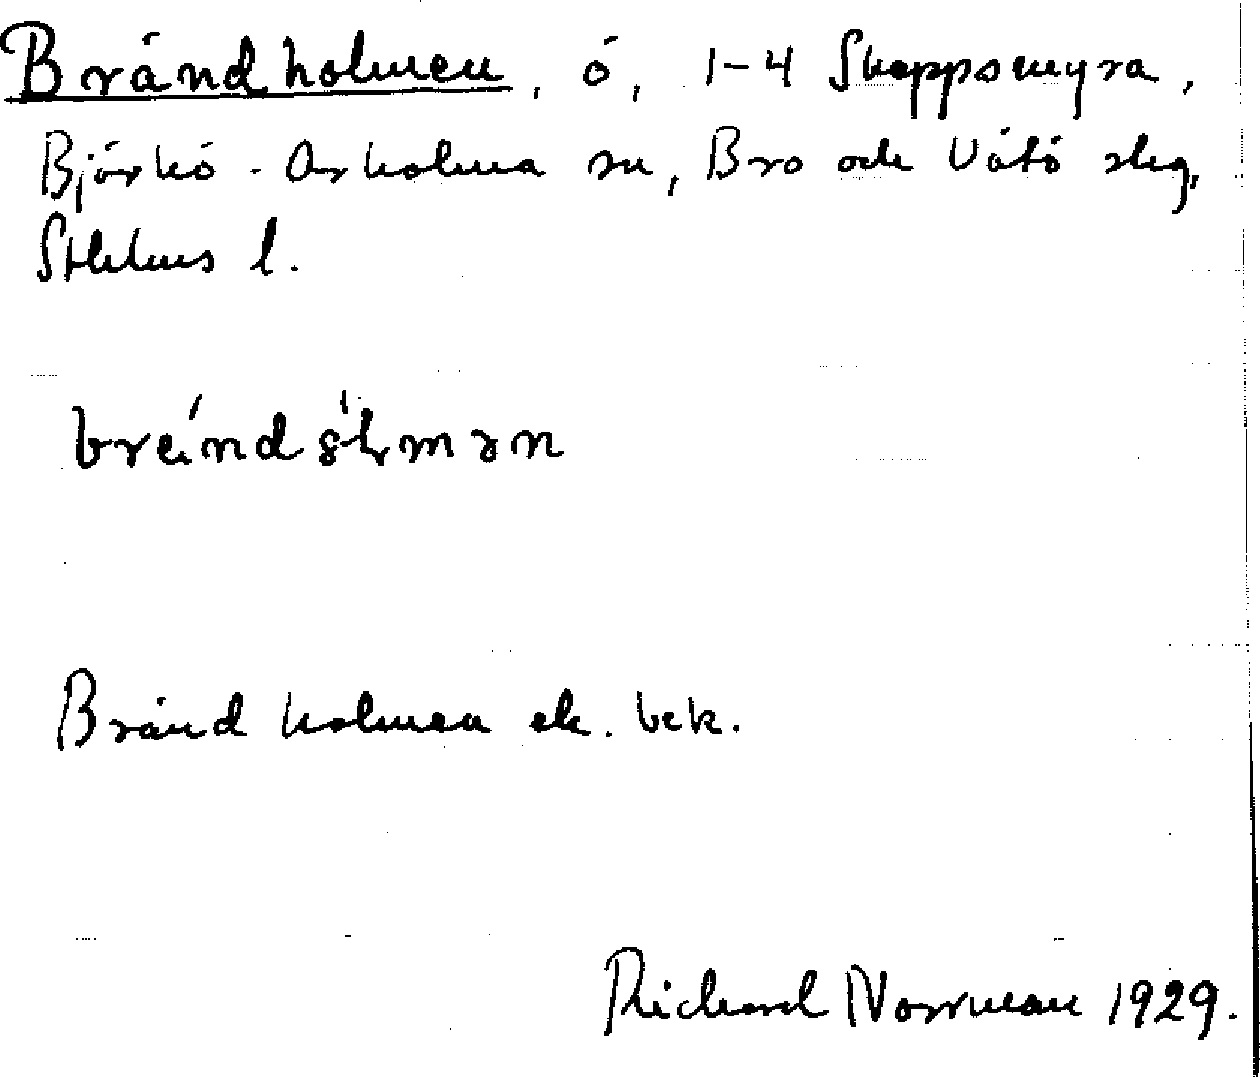 Brändholmen, ö, 1-4 Skeppsmyra,
Björkö-Arholma sn, Bro och Vätö skg,
Sthlms l.
Bränd holmen ek. bek.
Richard Norrman 1929.